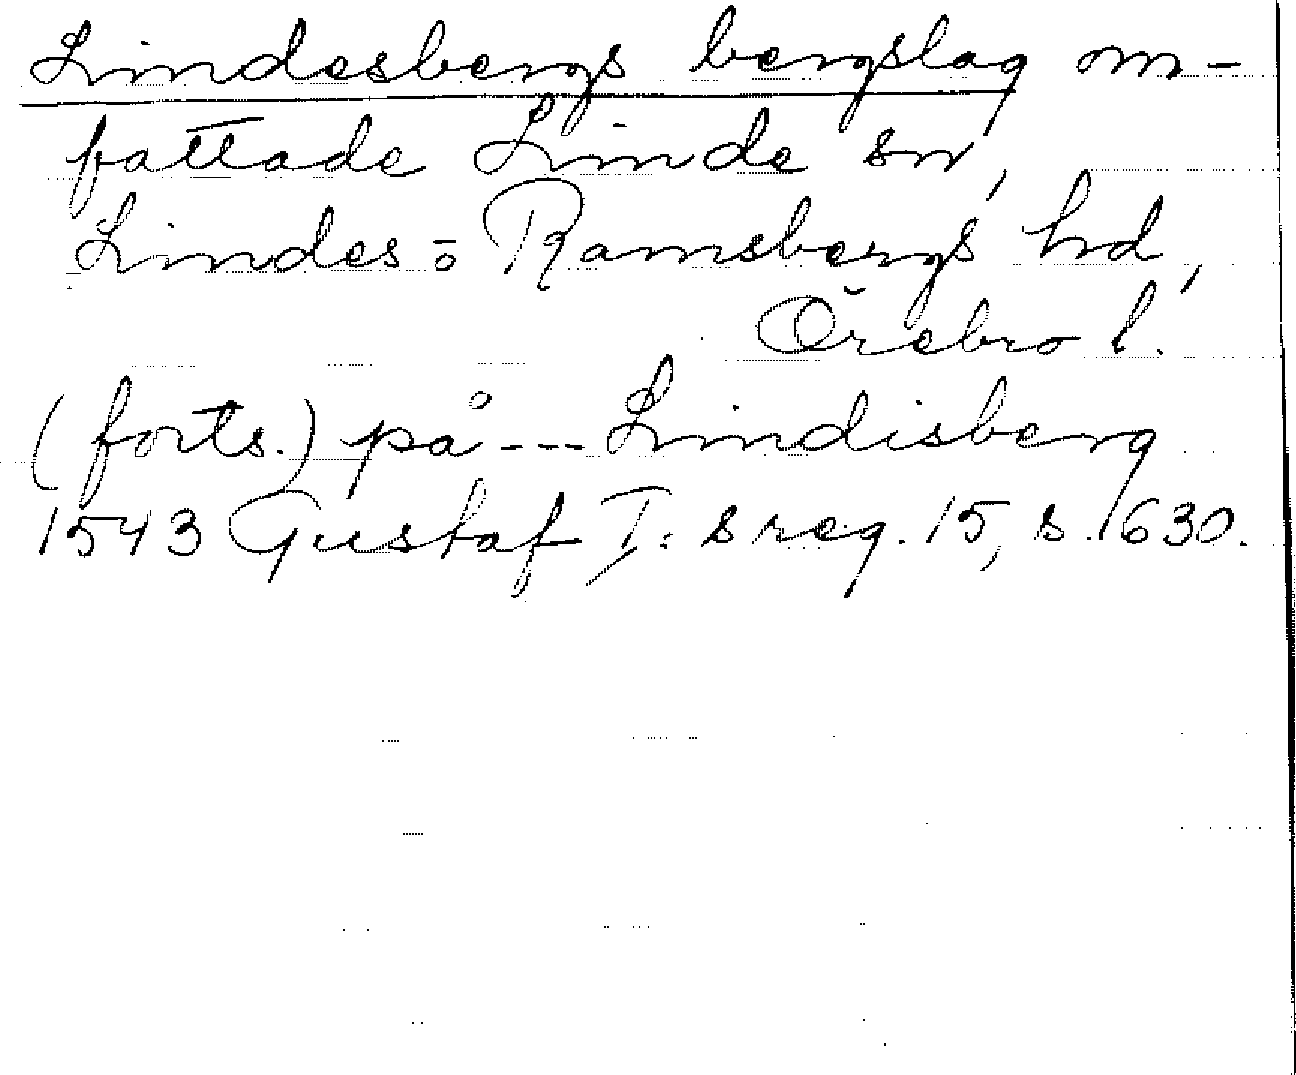 Lindesbergs bergslag om-
fattade Linde sn,
Lindes o Ramsbergs hd,
Örebro l.
(forts.) på --- Lindisberg
1543 Gustaf I:s reg. 15, s. 630.